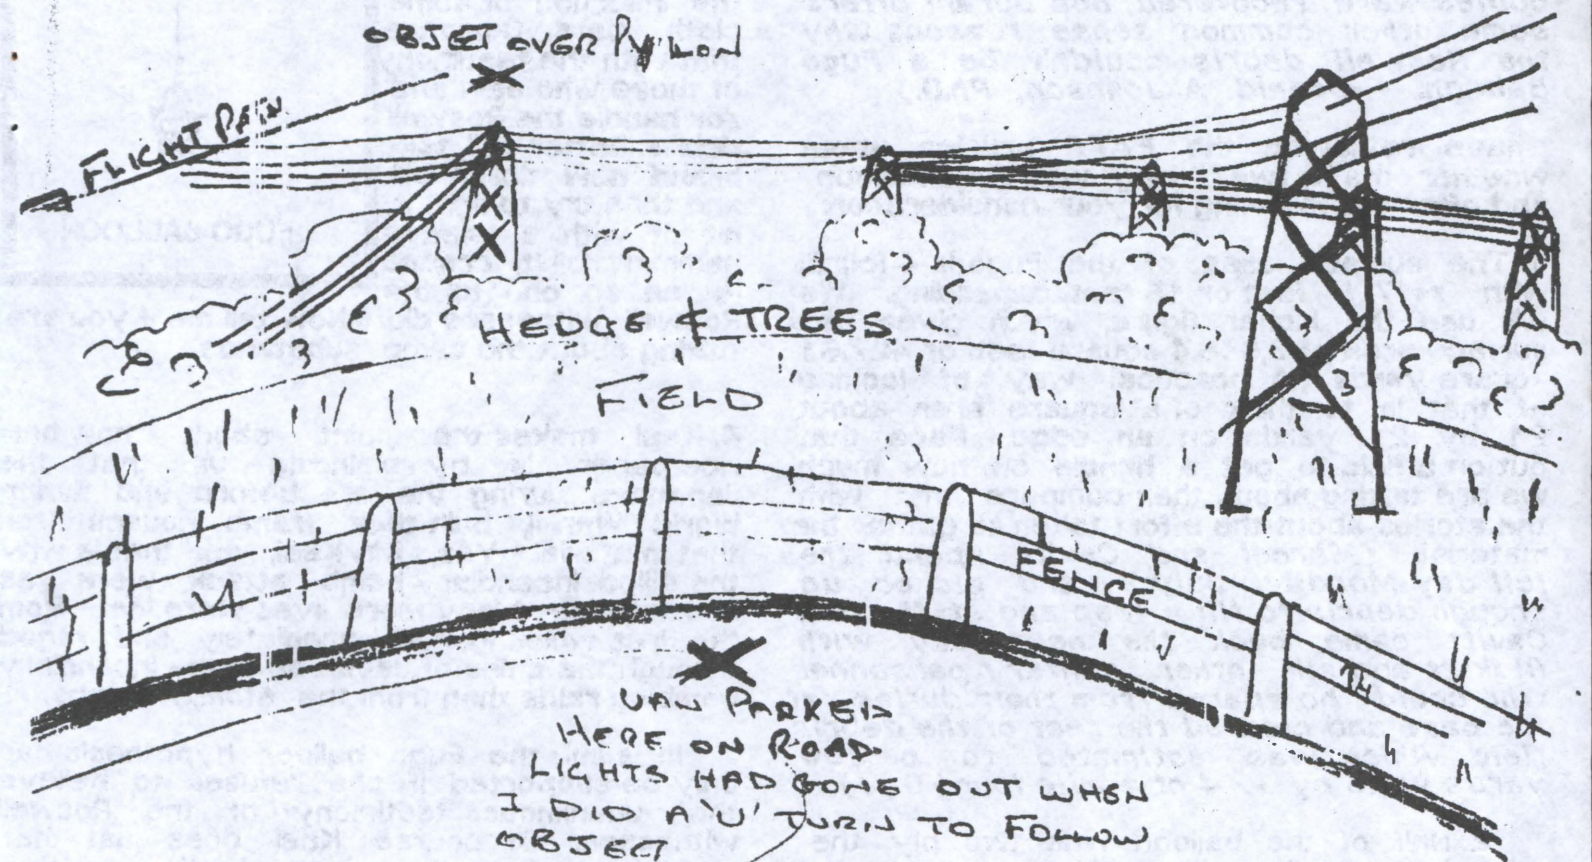 OBJECT OVER PYLON
FLIGHT PATH
HEDGE & TREES
FIELD
FENCE
VAN PARKED
HERE ON ROAD
LIGHTS HAD GONE OUT WHEN
I DID A 'U' TURN TO FOLLOW
OBJECT